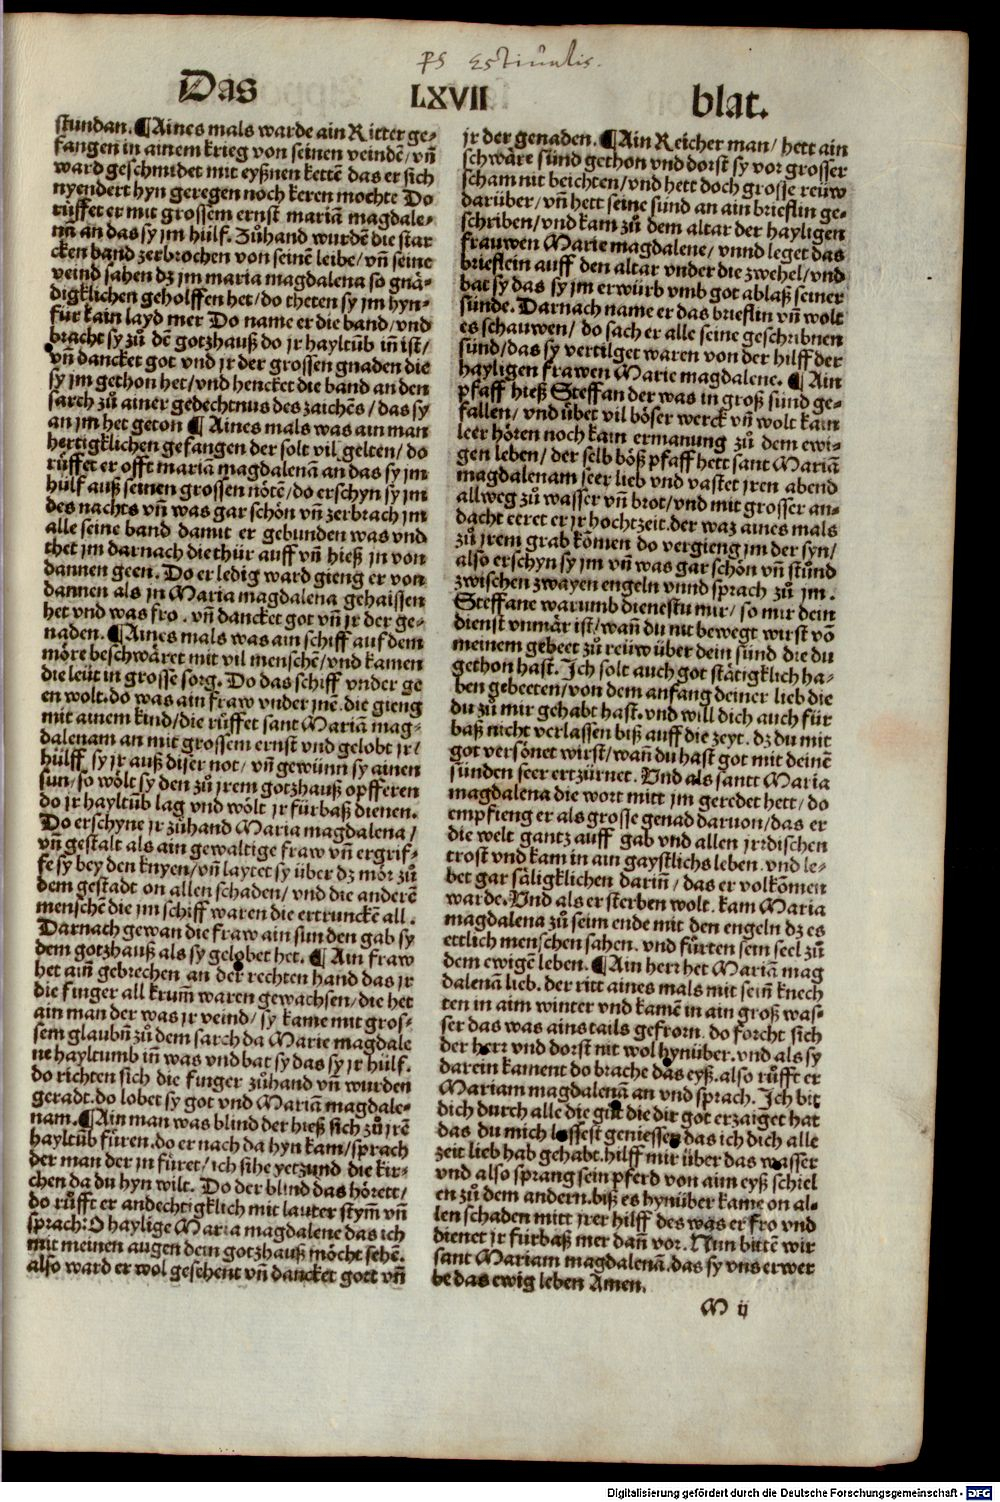 ps Estiualis.
Das LXVII blat.
stundan. ¶Aines mals warde ain Ritter ge⸗
fangen in ainem krieg von seinen veindē/ vn̄
ward geschmidet mit eyßnen kettē das er sich
nyendert hyn geregen noch keren mochte Do
růffet er mit grossem ernst mariā magdale⸗
nā an das sy jm hülf. Zůhand wurdē die star
cken band zerbrochen von seinē leibe/ vn̄ seine
veind sahen dz jm maria magdalena so gnä⸗
digklichen geholffen het/ do theten sy jm hyn⸗
für kain layd mer Do name er die band/ vnd
bracht sy zů dē gotzhauß do jr hayltūb in̄ ist/
vn̄ dancket got vnd jr der grossen gnaden die
sy jm gethon het/ vnd hencket die band an den
sarch zů ainer gedechtnus des zaichēs/ das sy
an jm het geton ¶Aines mals was ain man
hertigklichen gefangen der solt vil gelten/ do
růffet er offt mariā magdalenā an das sy jm
hülf auß seinen grossen nötē/ do erschyn sy jm
des nachts vn̄ was gar schön vn̄ zerbrach jm
alle seine band damit er gebunden was vnd
thet jm darnach die thür auff vn̄ hieß jn von
dannen geen. Do er ledig ward gieng er von
dannen als jn Maria magdalena gehaissen
het vnd was fro. vn̄ dancket got vn̄ jr der ge⸗
naden. ¶Aines mals was ain schiff auf dem
möre beschwäret mit vil menschē/ vnd kamen
die leüt in grosse sorg. Do das schiff vnder ge
en wolt. do was ain fraw vnder jnē. die gieng
mit ainem kind/ die růffet sant Mariā mag⸗
dalenam an mit grossem ernst vnd gelobt jr/
hülff sy jr auß diser not/ vn̄ gewünn sy ainen
sun/ so wölt sy den zů jrem gotzhauß opfferen
do jr hayltūb lag vnd wölt jr fürbaß dienen.
Do erschyne jr zůhand Maria magdalena/
vn̄ gestalt als ain gewaltige fraw vn̄ ergrif⸗
fe sy bey den knyen/ vn̄ laytet sy über dz mör zů
dem gestadt on allen schaden/ vnd die anderē
menschē die jm schiff waren die ertrunckē all.
Darnach gewan die fraw ain sun den gab sy
dem gotzhauß als sy gelobet het. ¶Ain fraw
het ain̄ gebrechen an der rechten hand das jr
die finger all krum̄ waren gewachsen/ die het
ain man der was jr veind/ sy kame mit gros⸗
sem glaubn̄ zů dem sarch da Marie magdale
ne hayltumb in̄ was vnd bat sy das sy jr hülf.
do richten sich die finger zůhand vn̄ wurden
geradt. do lobet sy got vnd Mariā magdale⸗
nam. ¶Ain man was blind der hieß sich zů jrē
hayltūb füren. do er nach da hyn kam/ sprach
der man der jn füret/ ich sihe yetzund die kir⸗
chen da du hyn wilt. Do der blind das hörett/
do růfft er andechtigklich mit lauter stym̄ vn̄
sprach: O haylige Maria magdalene das ich
mit meinen augen dein gotzhauß möcht sehē.
also ward er wol gesehent vn̄ dancket gott vn̄
jr der genaden. ¶Ain Reicher man/ hett ain
schwäre sünd gethon vnd dorst sy vor grosser
scham nit beichten/ vnd hett doch grosse reüw
darüber/ vn̄ hett seine sünd an ain brieflin ge⸗
schriben/ vnd kam zů dem altar der hayligen
frauwen Marie magdalene/ vnnd leget das
brieflein auff den altar vnder die zwehel/ vnd
bat sy das sy jm erwürb vmb got ablaß seiner
sünde. Darnach name er das brieflin vn̄ wolt
es schauwen/ do sach er alle seine geschribnen
sünd/ das sy vertilget waren von der hilff der
hayligen frawen Marie magdalene. ¶Ain
pfaff hieß Steffan der was in groß sünd ge⸗
fallen/ vnd übet vil böser werck vn̄ wolt kain
leer hören noch kain ermanung zů dem ewi⸗
gen leben/ der selb böß pfaff hett sant Mariā
magdalenam seer lieb vnd vastet jren abend
allweg zů wasser vn̄ brot/ vnd mit grosser an⸗
dacht eeret er jr hochtzeit. der waz aines mals
zů jrem grab kōmen do vergieng jm der syn/
also erschyn sy jm vn̄ was gar schön vn̄ stůnd
zwischen zwayen engeln vnnd sprach zů jm.
Steffane warumb dienestu mir/ so mir dein
dienst vnmär ist/ wan̄ du nit bewegt wirst vō
meinem gebeet zů reüw über dein sünd die du
gethon hast. Ich solt auch got stätigklich ha⸗
ben gebeeten/ von dem anfang deiner lieb die
du zů mir gehabt hast. vnd will dich auch für
baß nicht verlassen biß auff die zeyt. dz du mit
got versönet wirst/ wan̄ du hast got mit deinē
sünden seer ertzürnet. Vnd als santt Maria
magdalena die wort mitt jm geredet hett/ do
empfieng er als grosse genad daruon/ das er
die welt gantz auff gab vnd allen jrrdischen
trost vnd kam in ain gaystlichs leben. vnd le⸗
bet gar säligklichen darin̄/ das er volkōmen
warde. Vnd als er sterben wolt. kam Maria
magdalena zů seim ende mit den engeln dz es
ettlich menschen sahen. vnd fürten sein seel zů
dem ewigē leben. ¶Ain herr het Mariā mag
dalenā lieb. der ritt aines mals mit sein̄ knech
ten in aim winter vnd kamē in ain groß was⸗
ser das was ains tails gefrorn. do forcht sich
der herr vnd dorst nit wol hynüber. vnd als sy
darein kament do brache das eyß. also růfft er
Mariam magdalenā an vnd sprach. Ich bit
dich durch alle die gůt die dir got erzaiget hat
das du mich lassest geniessen das ich dich alle
zeit lieb hab gehabt. hilff mir über das wasser
vnd also sprang sein pferd von aim eyß schiel
en zů dem andern. biß es hynüber kame on al⸗
len schaden mitt jrer hilff des was er fro vnd
dienet jr fürbaß mer dan̄ vor. Nun bittē wir
sant Mariam magdalenā. das sy vns erwer
be das ewig leben Amen.
M ij
Digitalisierung gefördert durch die Deutsche Forschungsgemeinschaft - DFG